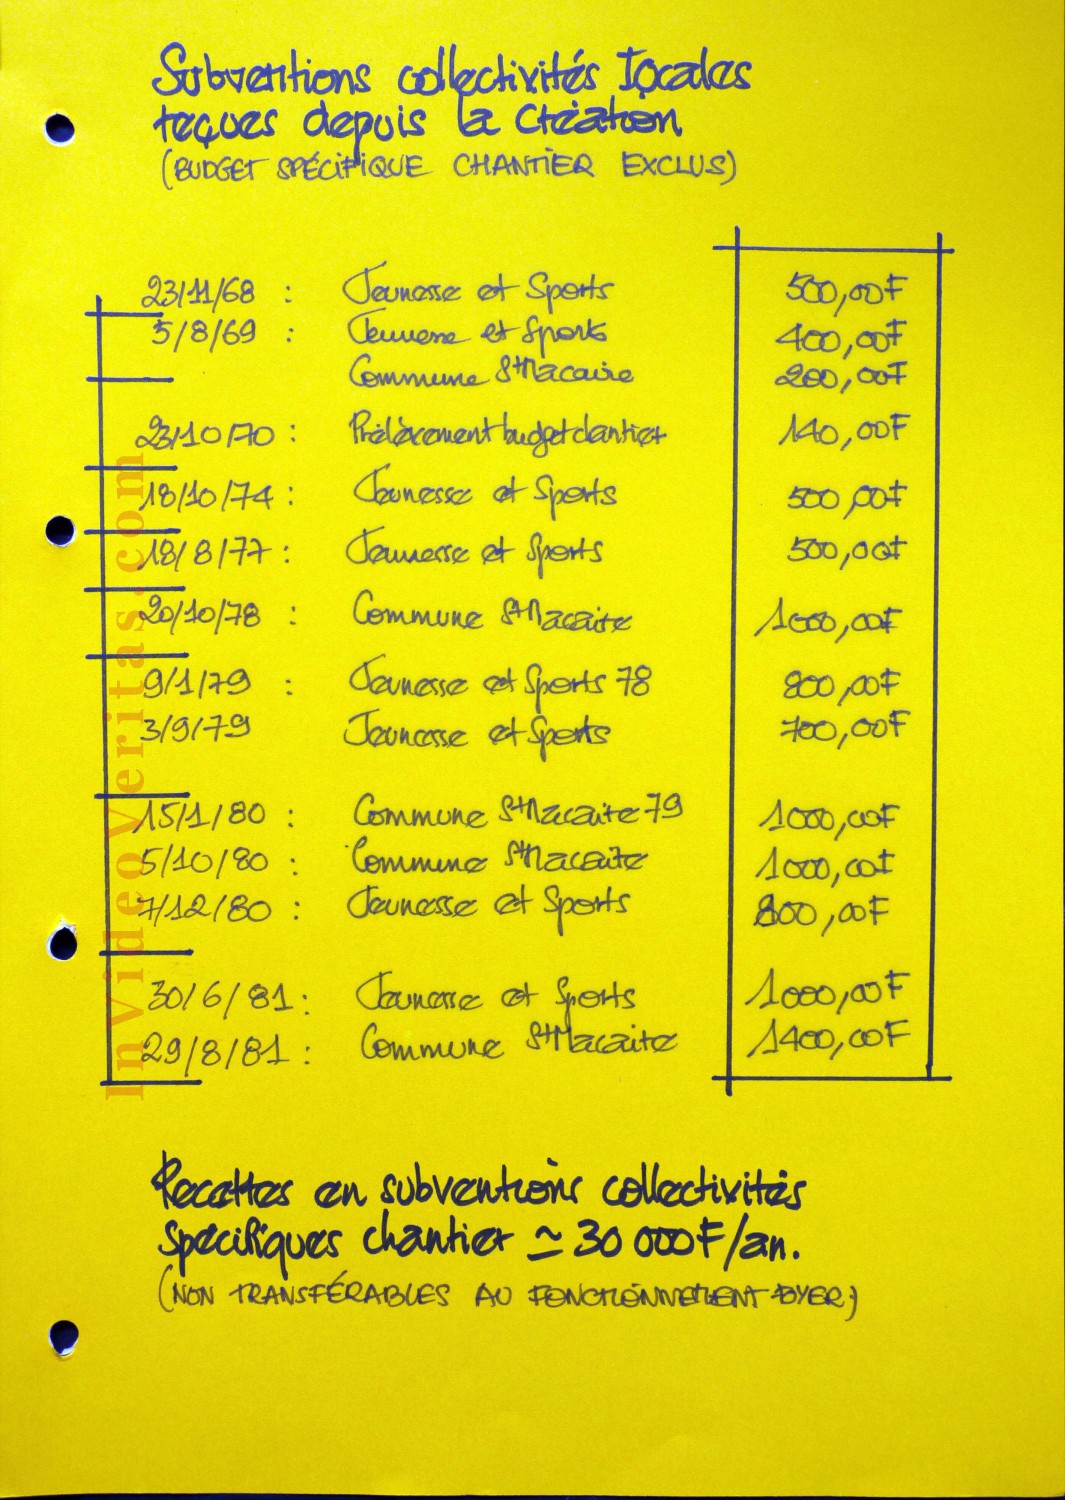 Subventions collectivités locales
reçues depuis la création
(BUDGET SPÉCIFIQUE CHANTIER EXCLUS)
23/11/68 : Jeunesse et Sports 500,00F
5/8/69 : Jeunesse et Sports 400,00F
Commune St Macaire 200,00F
23/10/70 : Prélèvement budget chantier 140,00F
18/10/74 : Jeunesse et Sports 500,00F
18/8/77 : Jeunesse et Sports 500,00F
20/10/78 : Commune St Macaire 1000,00F
9/1/79 : Jeunesse et Sports 78 800,00F
3/9/79 Jeunesse et Sports 700,00F
15/1/80 : Commune St Macaire 79 1000,00F
5/10/80 : Commune St Macaire 1000,00F
7/12/80 : Jeunesse et Sports 800,00F
30/6/81 : Jeunesse et Sports 1000,00F
29/8/81 : Commune St Macaire 1400,00F
Recettes en subventions collectivités
spécifiques chantier ≃ 30 000F/an.
(NON TRANSFÉRABLES AU FONCTIONNEMENT FOYER)
InVideoVeritas.com